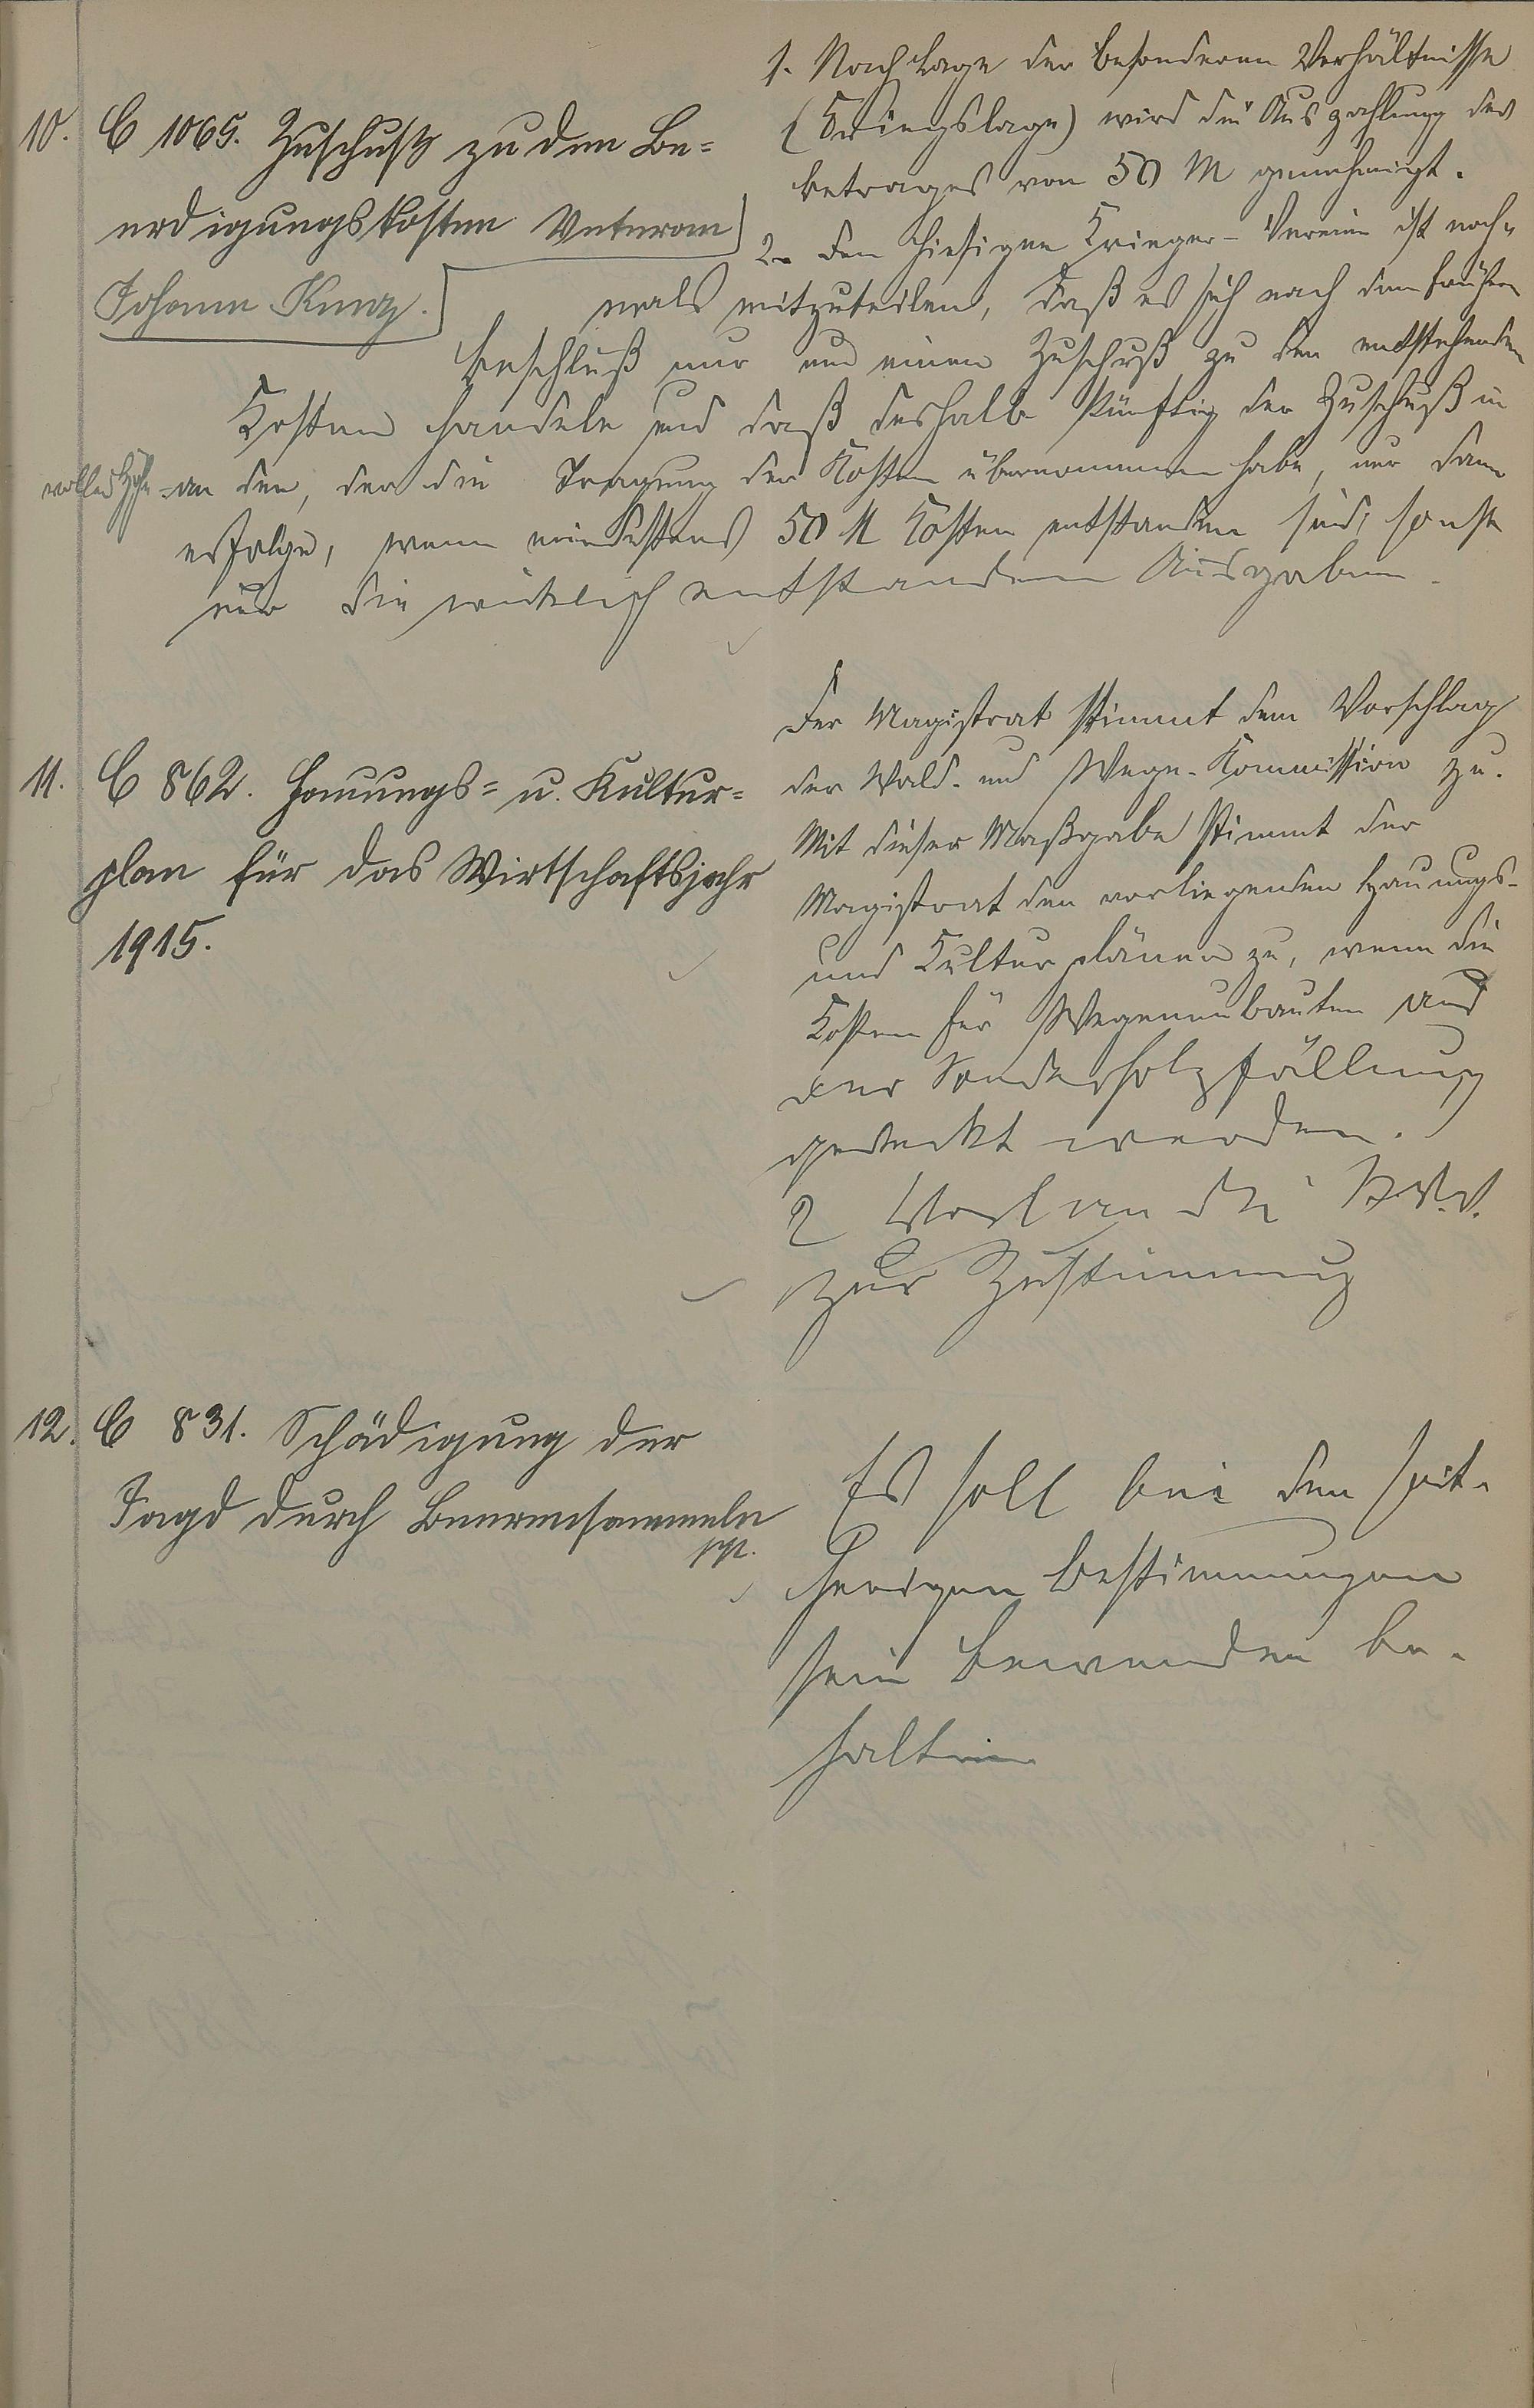 10. C 1065. Zuschuß zu den Be-
erdigungskosten Veteran
Johann Kunz.
1. Nach Lage der besonderen Verhältnisse
(Kriegslage) wird die Auszahlung des
Betrages von 50 M genehmigt.
2. Dem hiesigen Krieger-Verein ist noch-
mals mitzuteilen, daß es sich nach dem frühern
Beschluß nur um einen Zuschuß zu den entstehenden
Kosten handele und daß deshalb künftig der Zuschuß in
voller Höhe an den, der die Tragung der Kosten übernommen habe, nur dann
erfolge, wenn mindestens 50 M Kosten entstanden sind, sonst
nur die wirklich entstandenen Ausgaben.
11. C 862. Hauungs- u. Kultur-
plan für das Wirtschaftsjahr
1915.
Der Magistrat stimmt dem Vorschlag
der Wald- und Wege-Kommission zu.
Mit dieser Maßgabe stimmt der
Magistrat den vorliegenden Hauungs-
und Kulturplänen zu, wenn die
Kosten für Wegeneubauten aus
der Sonderholzfällung
gedeckt werden.
2 Vorl an die St.V.V.
zur Zustimmung
12. C 831. Schädigung der
Jagd durch Beerensammeln
pp.
Es soll bei den seit-
herigen Bestimmungen
sein Bewenden be-
halten